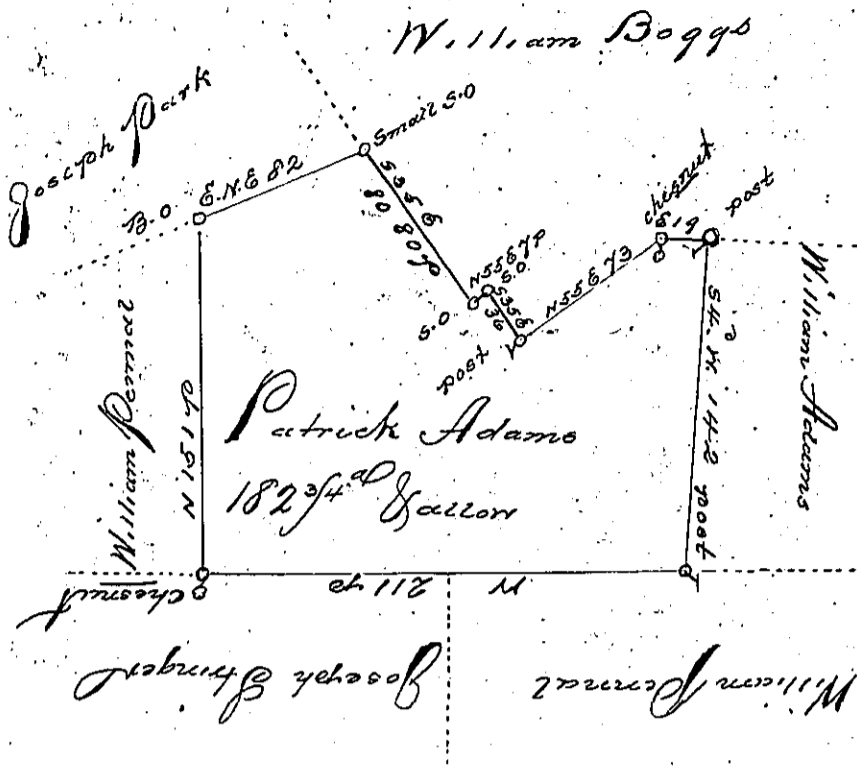 William Boggs
Joseph Park
Small S.O
B.O
E.N.E 82
S35E
80 P
chesnut
post
E 19
N55E 7P
S.O
S.O
S35E
36
N55E 73
post
William Adams
S4.W. 142
post
William Pennal
N 151 P
Patrick Adams
182 3/4 a
W
211 P
Chesnut
Joseph Stringer
William Pennal